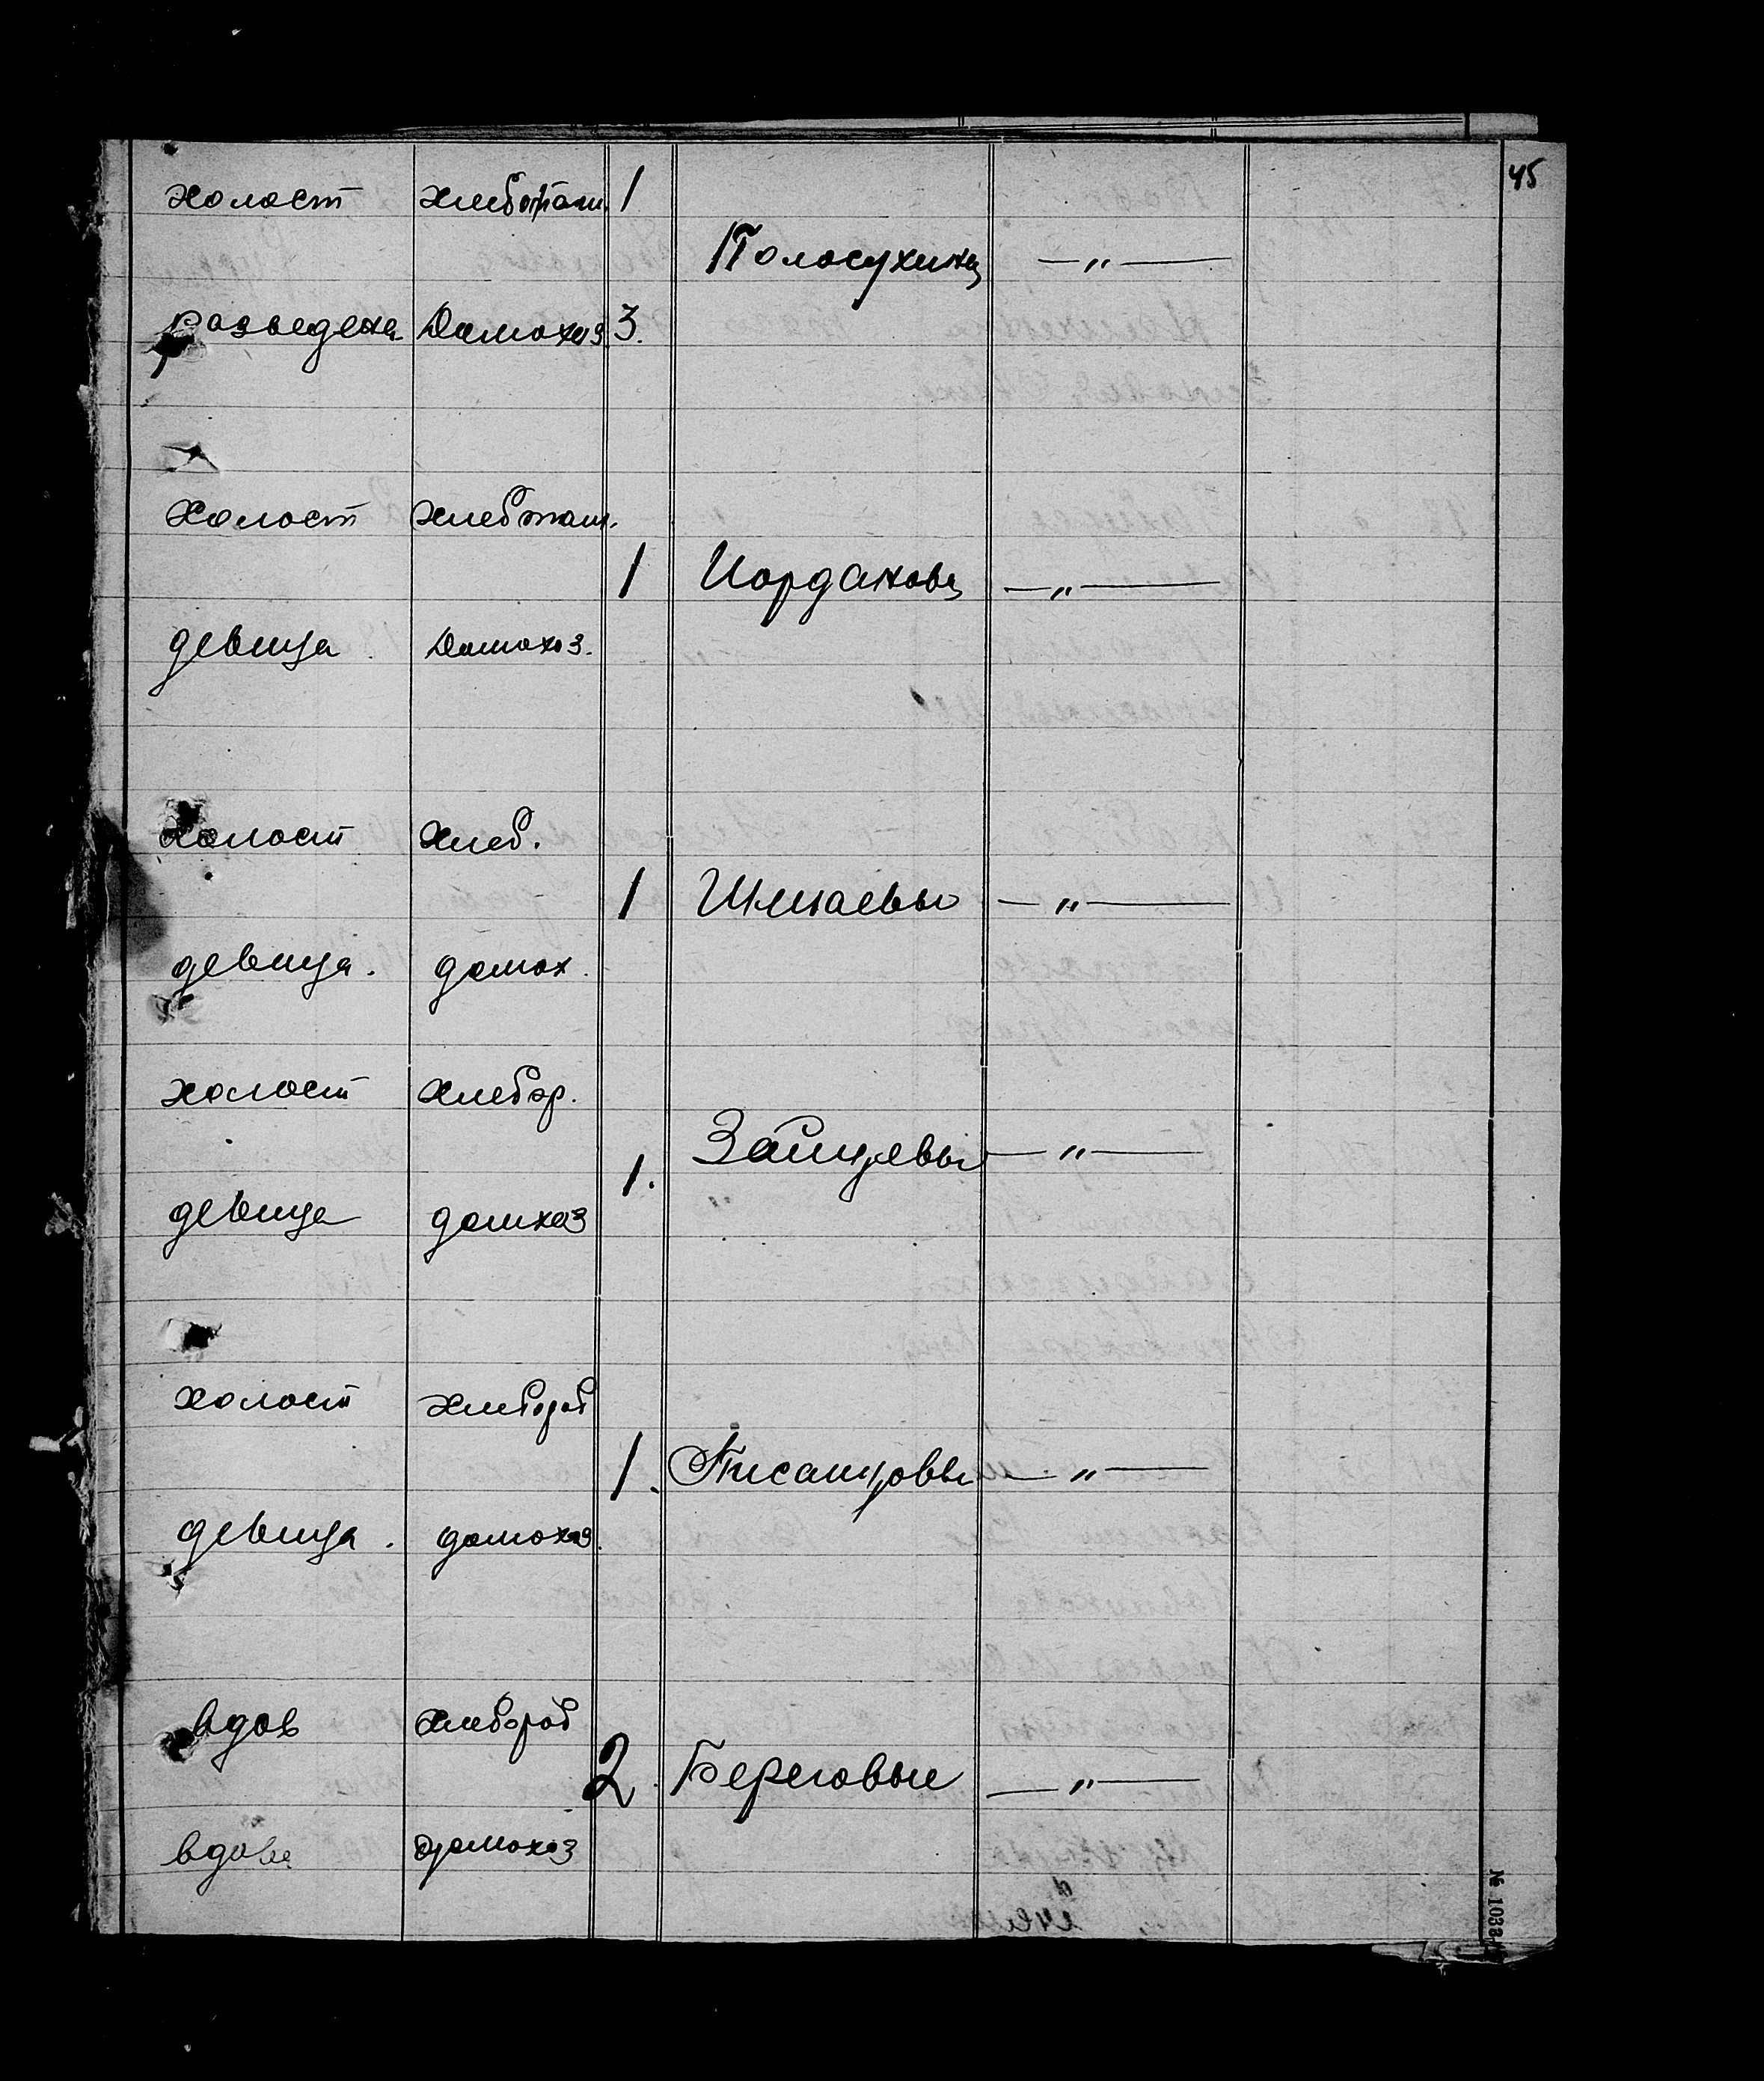 45
холост хлебопаш. 1
Полосухины — „ —
разведена Домохоз 3.
холост хлебопаш.
1 Иордановы — „ —
девица Домохоз.
холост хлеб.
1 Шмаевы — „ —
девица. домох.
холост хлебор.
1. Зайцевы — „ —
девица домхоз
холост хлебороб
1. Писанцовы — „ —
девица. домохоз.
вдов хлебороб
2. Береговые — „ —
вдова домохоз
№ 1033